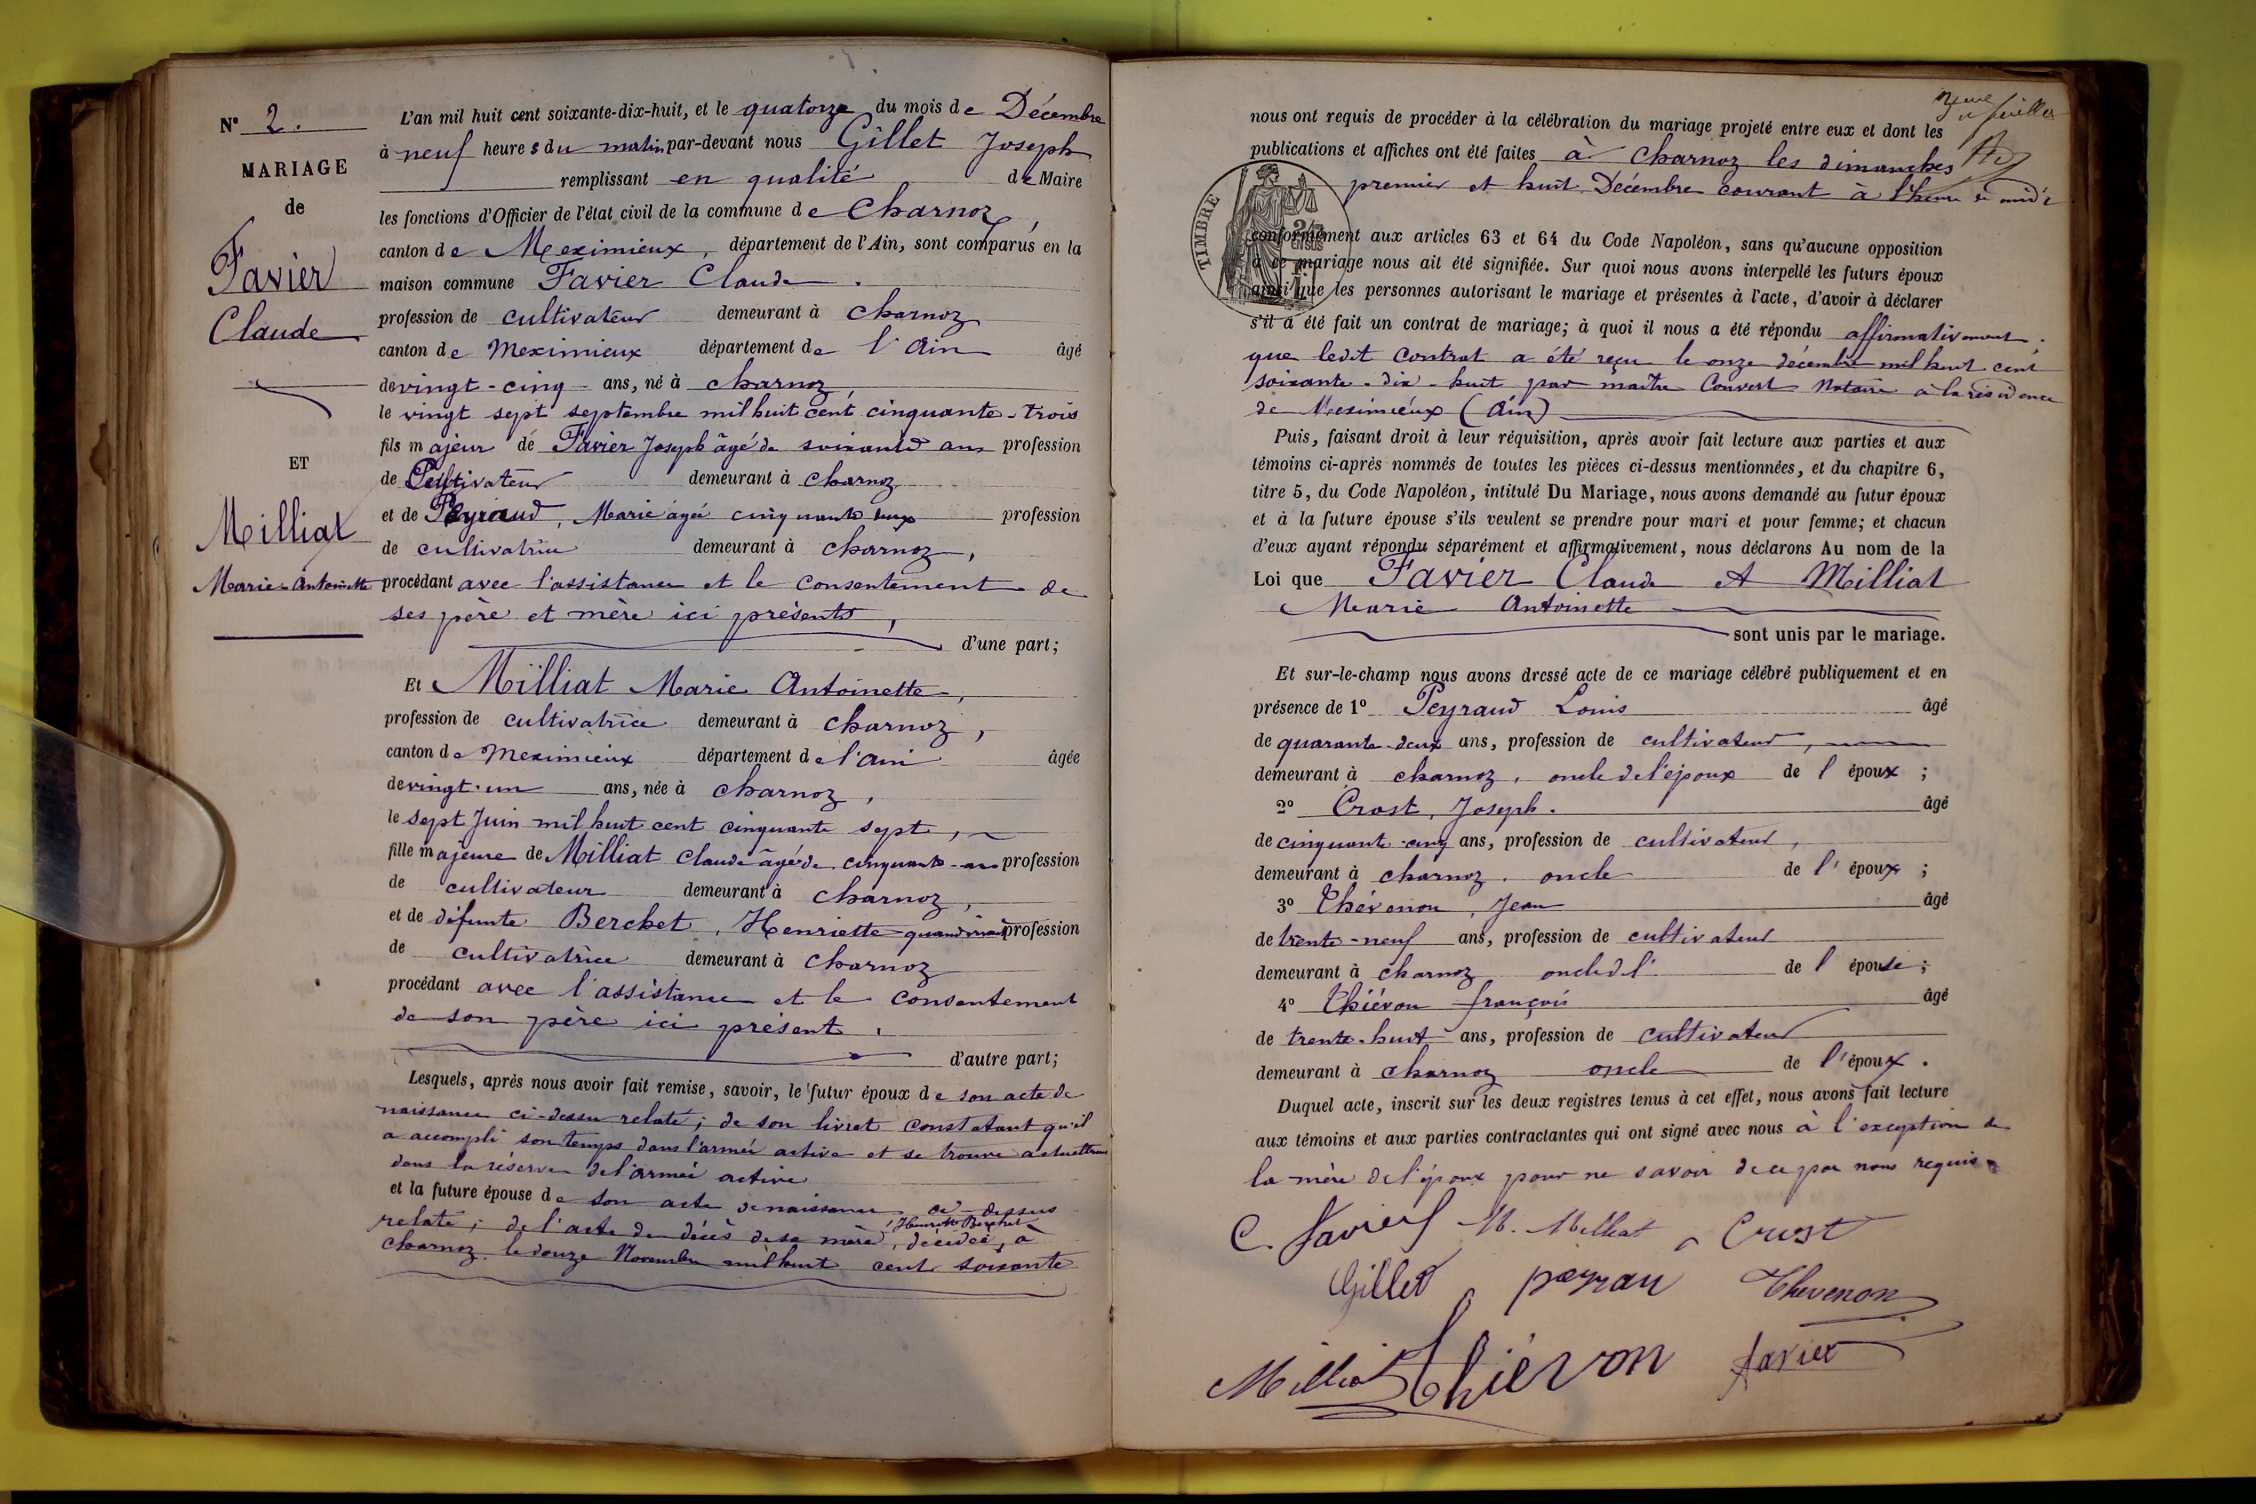 N° 2.
MARIAGE
de
Favier
Claude
ET
Milliat
Marie-Antoinette
L'an mil huit cent soixante-dix-huit, et le quatorze du mois de Décembre
à neuf heures du matin par-devant nous Gillet Joseph
remplissant en qualité de Maire
les fonctions d'Officier de l'état civil de la commune de Charnoz,
canton de Meximieux, département de l'Ain, sont comparus en la
maison commune Favier Claude.
profession de cultivateur demeurant à charnoz
canton de Meximieux département de l'Ain âgé
de vingt-cinq ans, né à charnoz,
le vingt sept septembre mil huit cent cinquante-trois
fils majeur de Favier Joseph âgé de soixante ans profession
de Cultivateur demeurant à charnoz
et de Peyraud, Marie âgée cinquante deux profession
de cultivatrice demeurant à charnoz,
procédant avec l'assistance et le consentement de
ses père et mère ici présents,
d'une part;
Et Milliat Marie Antoinette,
profession de cultivatrice demeurant à charnoz,
canton de Meximieux département de l'Ain âgée
de vingt-un ans, née à charnoz,
le sept Juin mil huit cent cinquante sept,
fille majeure de Milliat Claude âgé de cinquante-ans profession
de cultivateur demeurant à charnoz,
et de défunte Berchet, Henriette quand vivait profession
de cultivatrice demeurant à charnoz
procédant avec l'assistance et le consentement
de son père ici présent.
d'autre part;
Lesquels, après nous avoir fait remise, savoir, le futur époux de son acte de
naissance ci-dessus relaté; de son livret constatant qu'il
a accompli son temps dans l'armée active et se trouve actuellement
dans la réserve de l'armée active
et la future épouse de son acte de naissance ci-dessus
relaté; de l'acte de décès de sa mère, Henriette Berchet, décédée, à
charnoz le douze Novembre mil huit cent soixante
nous ont requis de procéder à la célébration du mariage projeté entre eux et dont les
publications et affiches ont été faites à charnoz les dimanches
premier et huit Décembre courant à l'heure de midi
TIMBRE
conformément aux articles 63 et 64 du Code Napoléon, sans qu'aucune opposition
à ce mariage nous ait été signifiée. Sur quoi nous avons interpellé les futurs époux
ainsi que les personnes autorisant le mariage et présentes à l'acte, d'avoir à déclarer
s'il a été fait un contrat de mariage; à quoi il nous a été répondu affirmativement;
que ledit contrat a été reçu le onze décembre mil huit cent
soixante-dix-huit par maître Convert Notaire à la résidence
de Meximieux (Ain)
Puis, faisant droit à leur réquisition, après avoir fait lecture aux parties et aux
témoins ci-après nommés de toutes les pièces ci-dessus mentionnées, et du chapitre 6,
titre 5, du Code Napoléon, intitulé Du Mariage, nous avons demandé au futur époux
et à la future épouse s'ils veulent se prendre pour mari et pour femme; et chacun
d'eux ayant répondu séparément et affirmativement, nous déclarons Au nom de la
Loi que Favier Claude et Milliat
Marie Antoinette
sont unis par le mariage.
Et sur-le-champ nous avons dressé acte de ce mariage célébré publiquement et en
présence de 1° Peyraud Louis âgé
de quarante-deux ans, profession de cultivateur,
demeurant à charnoz, oncle de l'époux de l'époux;
2° Crost, Joseph. âgé
de cinquante-cinq ans, profession de cultivateur,
demeurant à charnoz. oncle de l'époux;
3° Thévenon, Jean âgé
de trente-neuf ans, profession de cultivateur
demeurant à charnoz oncle de l' de l'épouse;
4° Thiévon françois âgé
de trente-huit ans, profession de cultivateur
demeurant à charnoz oncle de l'époux.
Duquel acte, inscrit sur les deux registres tenus à cet effet, nous avons fait lecture
aux témoins et aux parties contractantes qui ont signé avec nous à l'exception de
la mère de l'époux pour ne savoir de ce par nous requis
C. Favier M. Milliat Crost
Gillet peyrau Thevenon
Milliat Thiévon favier